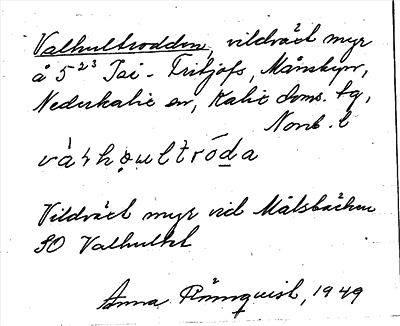 Valhultrodden, vildväxt myr
å 5²³ Jai - Fritjofs, Månsbyn,
Nederkalix sn, Kalix doms. tg,
Norrb. l
Vildväxt myr vid Målsbäcken
SO Valhultet
Anna Rönnquist, 1949